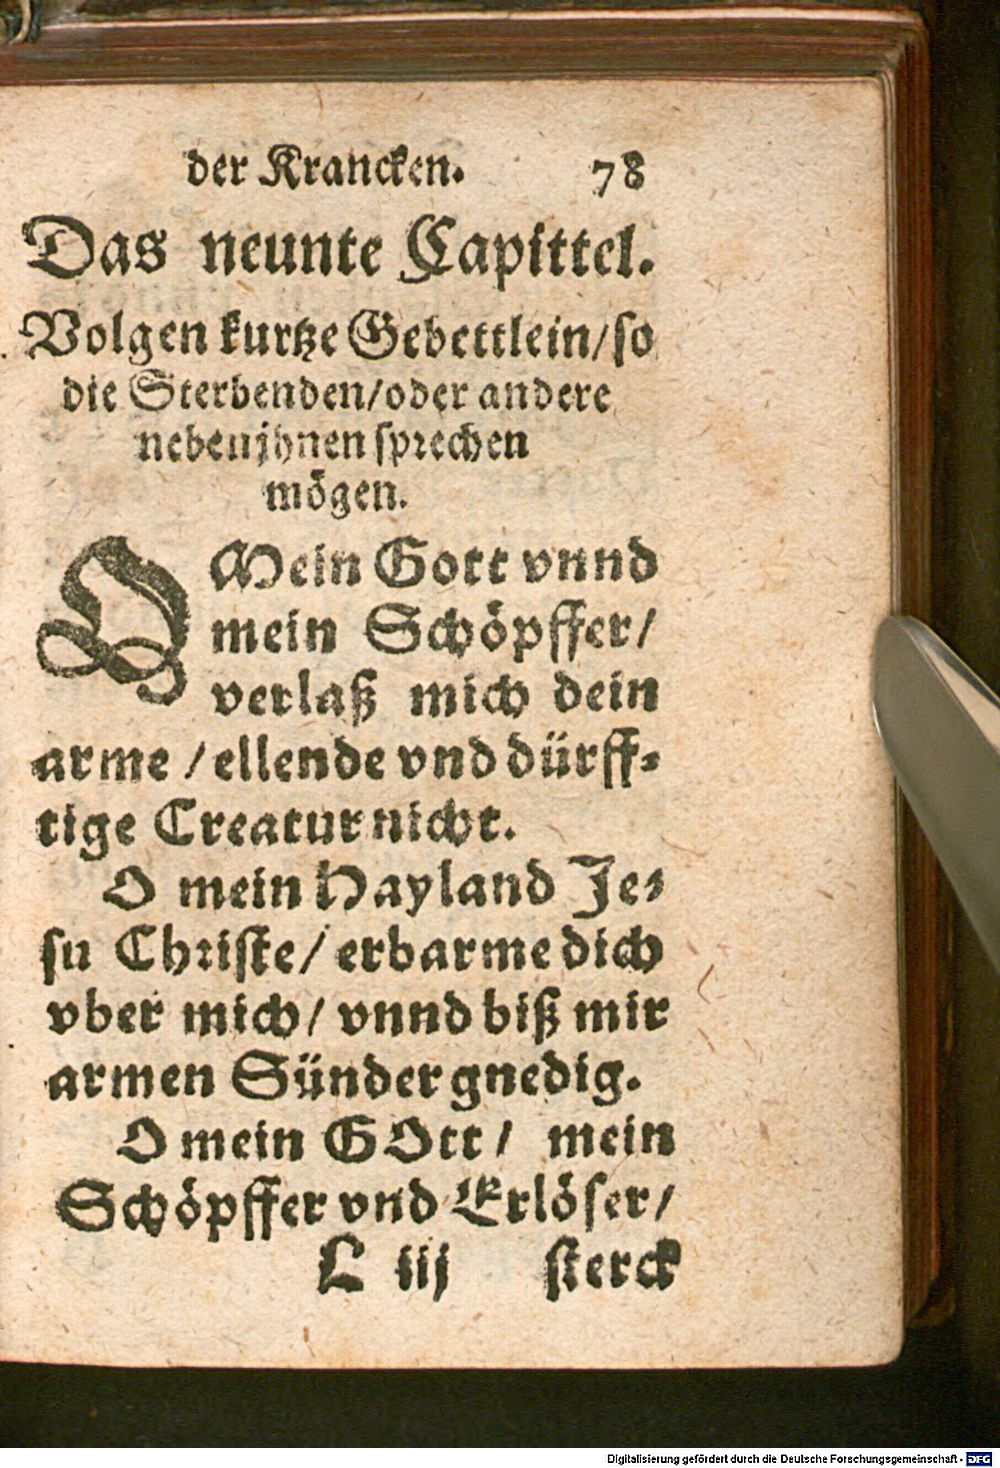 der Krancken. 78
Das neunte Capittel.
Volgen kurtze Gebettlein/so
die Sterbenden/oder andere
neben jhnen sprechen
mögen.
O Mein Gott vnnd
mein Schöpffer/
verlaß mich dein
arme /ellende vnd dürff-
tige Creatur nicht.
O mein Hayland Je-
su Christe/ erbarme dich
vber mich/ vnnd biß mir
armen Sünder gnedig.
O mein GOtt/ mein
Schöpffer vnd Erlöser/
L iij sterck
Digitalisierung gefördert durch die Deutsche Forschungsgemeinschaft - DFG